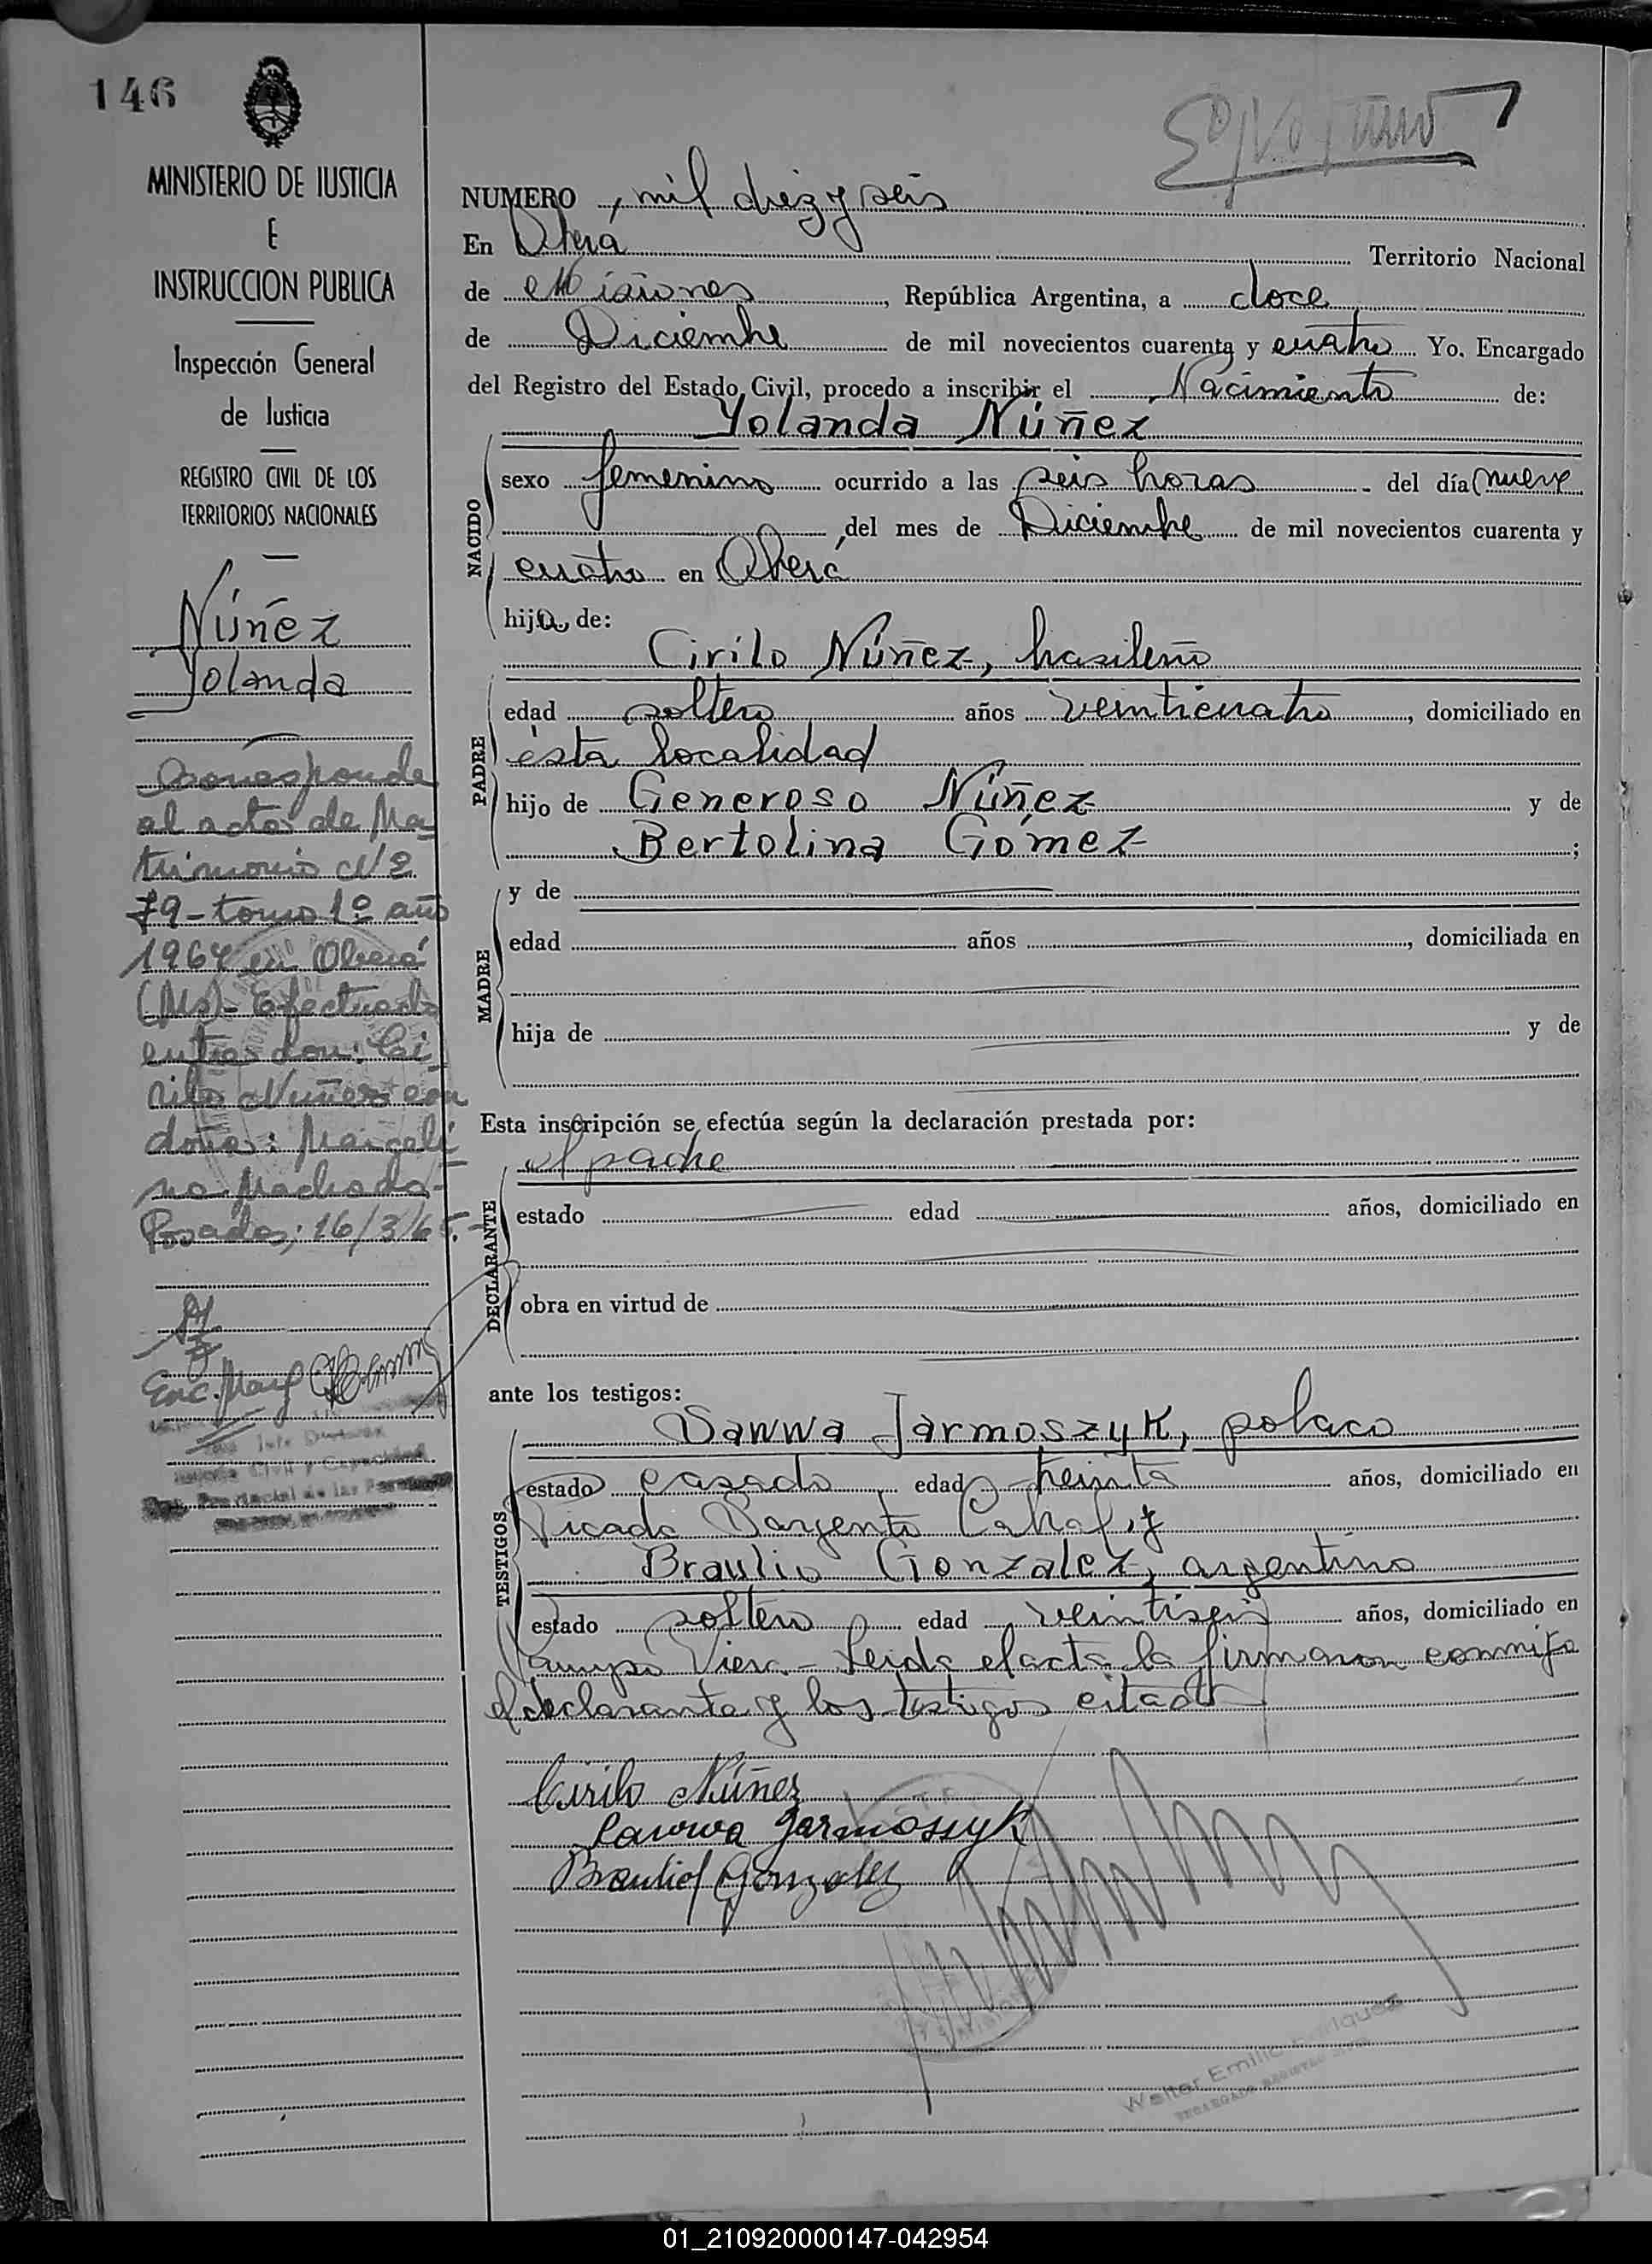 146
MINISTERIO DE JUSTICIA
E
INSTRUCCION PUBLICA
Inspección General
de Justicia
REGISTRO CIVIL DE LOS
TERRITORIOS NACIONALES
Núñez
Yolanda
Corresponde
al acta de Ma
trimonio Nº
79 - tomo 1º año
1964 en Oberá
(Ms)- Efectuado
entre don: Ci
rilo Nuñez con
doña: Marceli
na Machado-
Posadas, 16/3/65.-
NUMERO , mil diez y seis
En Obera Territorio Nacional
de Misiones, República Argentina, a doce
de Diciembre de mil novecientos cuarenta y cuatro Yo. Encargado
del Registro del Estado Civil, procedo a inscribir el Nacimiento de:
Yolanda Núñez
NACIDO
sexo femenino ocurrido a las seis horas del día nueve
del mes de Diciembre de mil novecientos cuarenta y
cuatro en Oberá
hija de:
Cirilo Núñez, brasileño
PADRE
edad soltero años veinticuatro, domiciliado en
ésta localidad
hijo de Generoso Núñez y de
Bertolina Gómez ;
MADRE
y de
edad años , domiciliada en
hija de y de
Esta inscripción se efectúa según la declaración prestada por:
el padre
DECLARANTE
estado edad años, domiciliado en
obra en virtud de
ante los testigos:
Sawwa Jarmoszyk, polaco
TESTIGOS
estado casado edad treinta años, domiciliado en
Picada Sargento Cabral, y
Braulio Gonzalez, argentino
estado soltero edad veintiseis años, domiciliado en
Campo Viera - Leida el acta la firmaron conmigo
el declarante y los testigos citados
Cirilo Núñez
Sawwa Jarmoszyk
Braulio Gonzalez
Walter Emilio
01_210920000147-042954